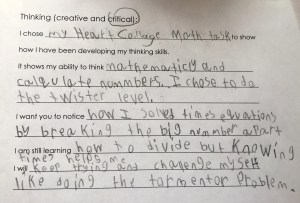 Thinking (creative and critical):
I chose my Heart Collage Math task to show
how I have been developing my thinking skills.
It shows my ability to think mathematicly and
calgulate nummbers. I chose to do
the twister level.
I want you to notice how I solved times equations
by breaking the big nummber apart
I am still learning how to divide but Knowing
times helps me
I will Keep trying and chalenge myself
like doing the tormentor problem.